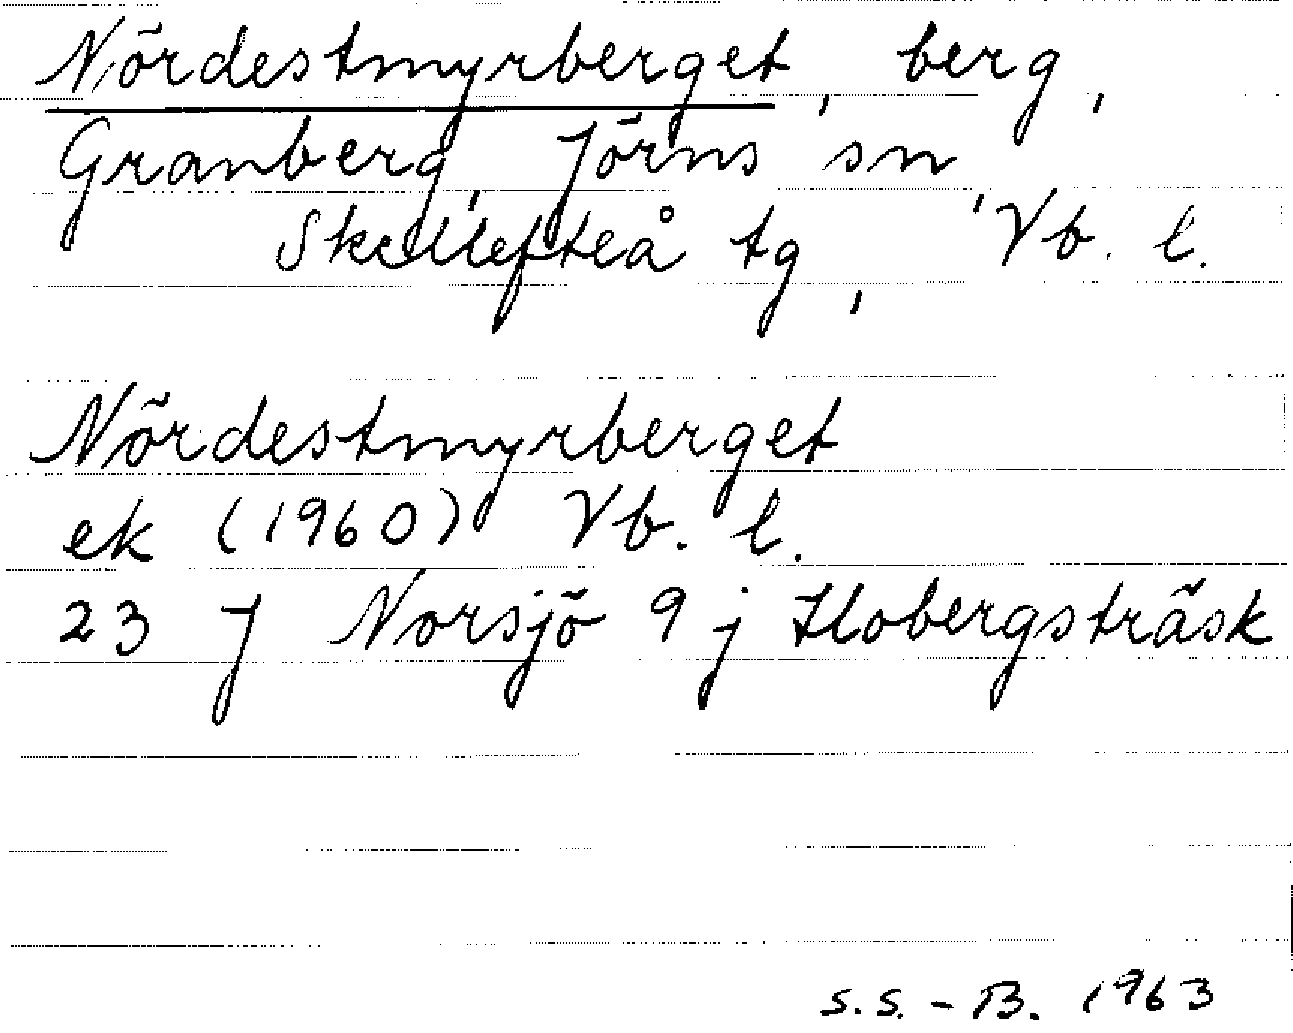 Nördestmyrberget, berg,
Granberg, Jörns sn,
Skellefteå tg, Vb. l.
Nördestmyrberget
ek (1960) Vb. l.
23 J Norsjö 9 j Hobergsträsk
S.S. - B. 1963